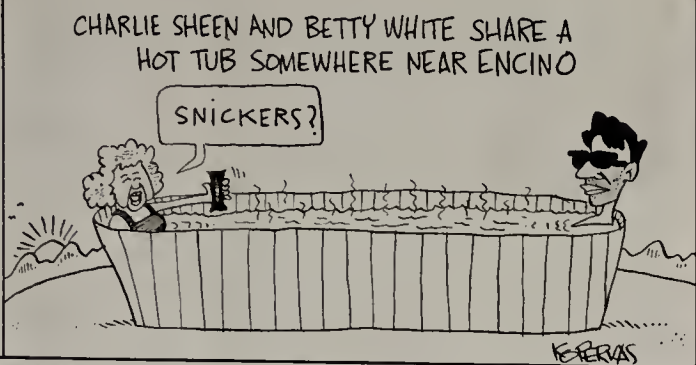 CHARLIE SHEEN AND BETTY WHITE SHARE A
HOT TUB SOMEWHERE NEAR ENCINO
SNICKERS?
KOPERVAS